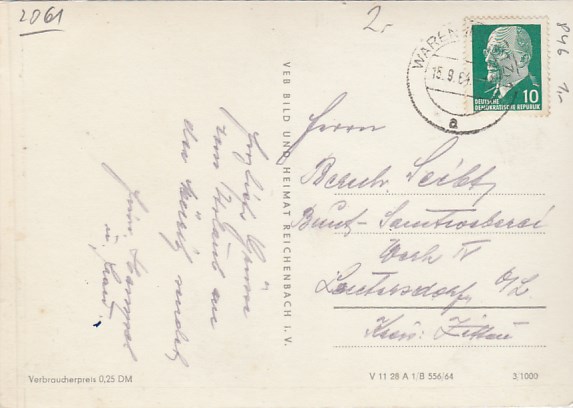 2061
2.-
846 1.-
WAREN
15.9.64
a
10
DEUTSCHE
DEMOKRATISCHE REPUBLIK
VEB BILD UND HEIMAT REICHENBACH i. V.
Herzliche Grüße
vom Urlaub an
der Müritz sendet
Fam.
u. Frau
Herrn
Bernh. Seibt
Bunt-Samtweberei
Werk IV
Leutersdorf O/L
Kreis: Zittau
Verbraucherpreis 0,25 DM
V 11 28 A 1/B 556/64
3/1000